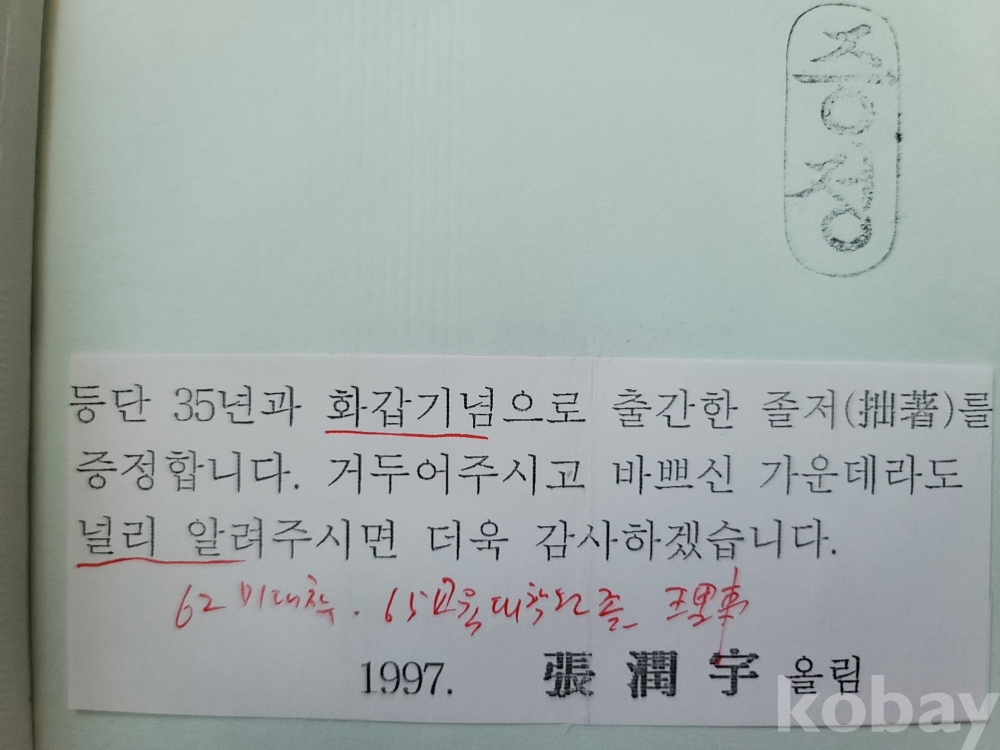 증정
등단 35년과 화갑기념으로 출간한 졸저(拙著)를
증정합니다. 거두어주시고 바쁘신 가운데라도
널리 알려주시면 더욱 감사하겠습니다.
62 미대학. 65 교육대학원 졸 理事
1997. 張潤宇 올림
kobay